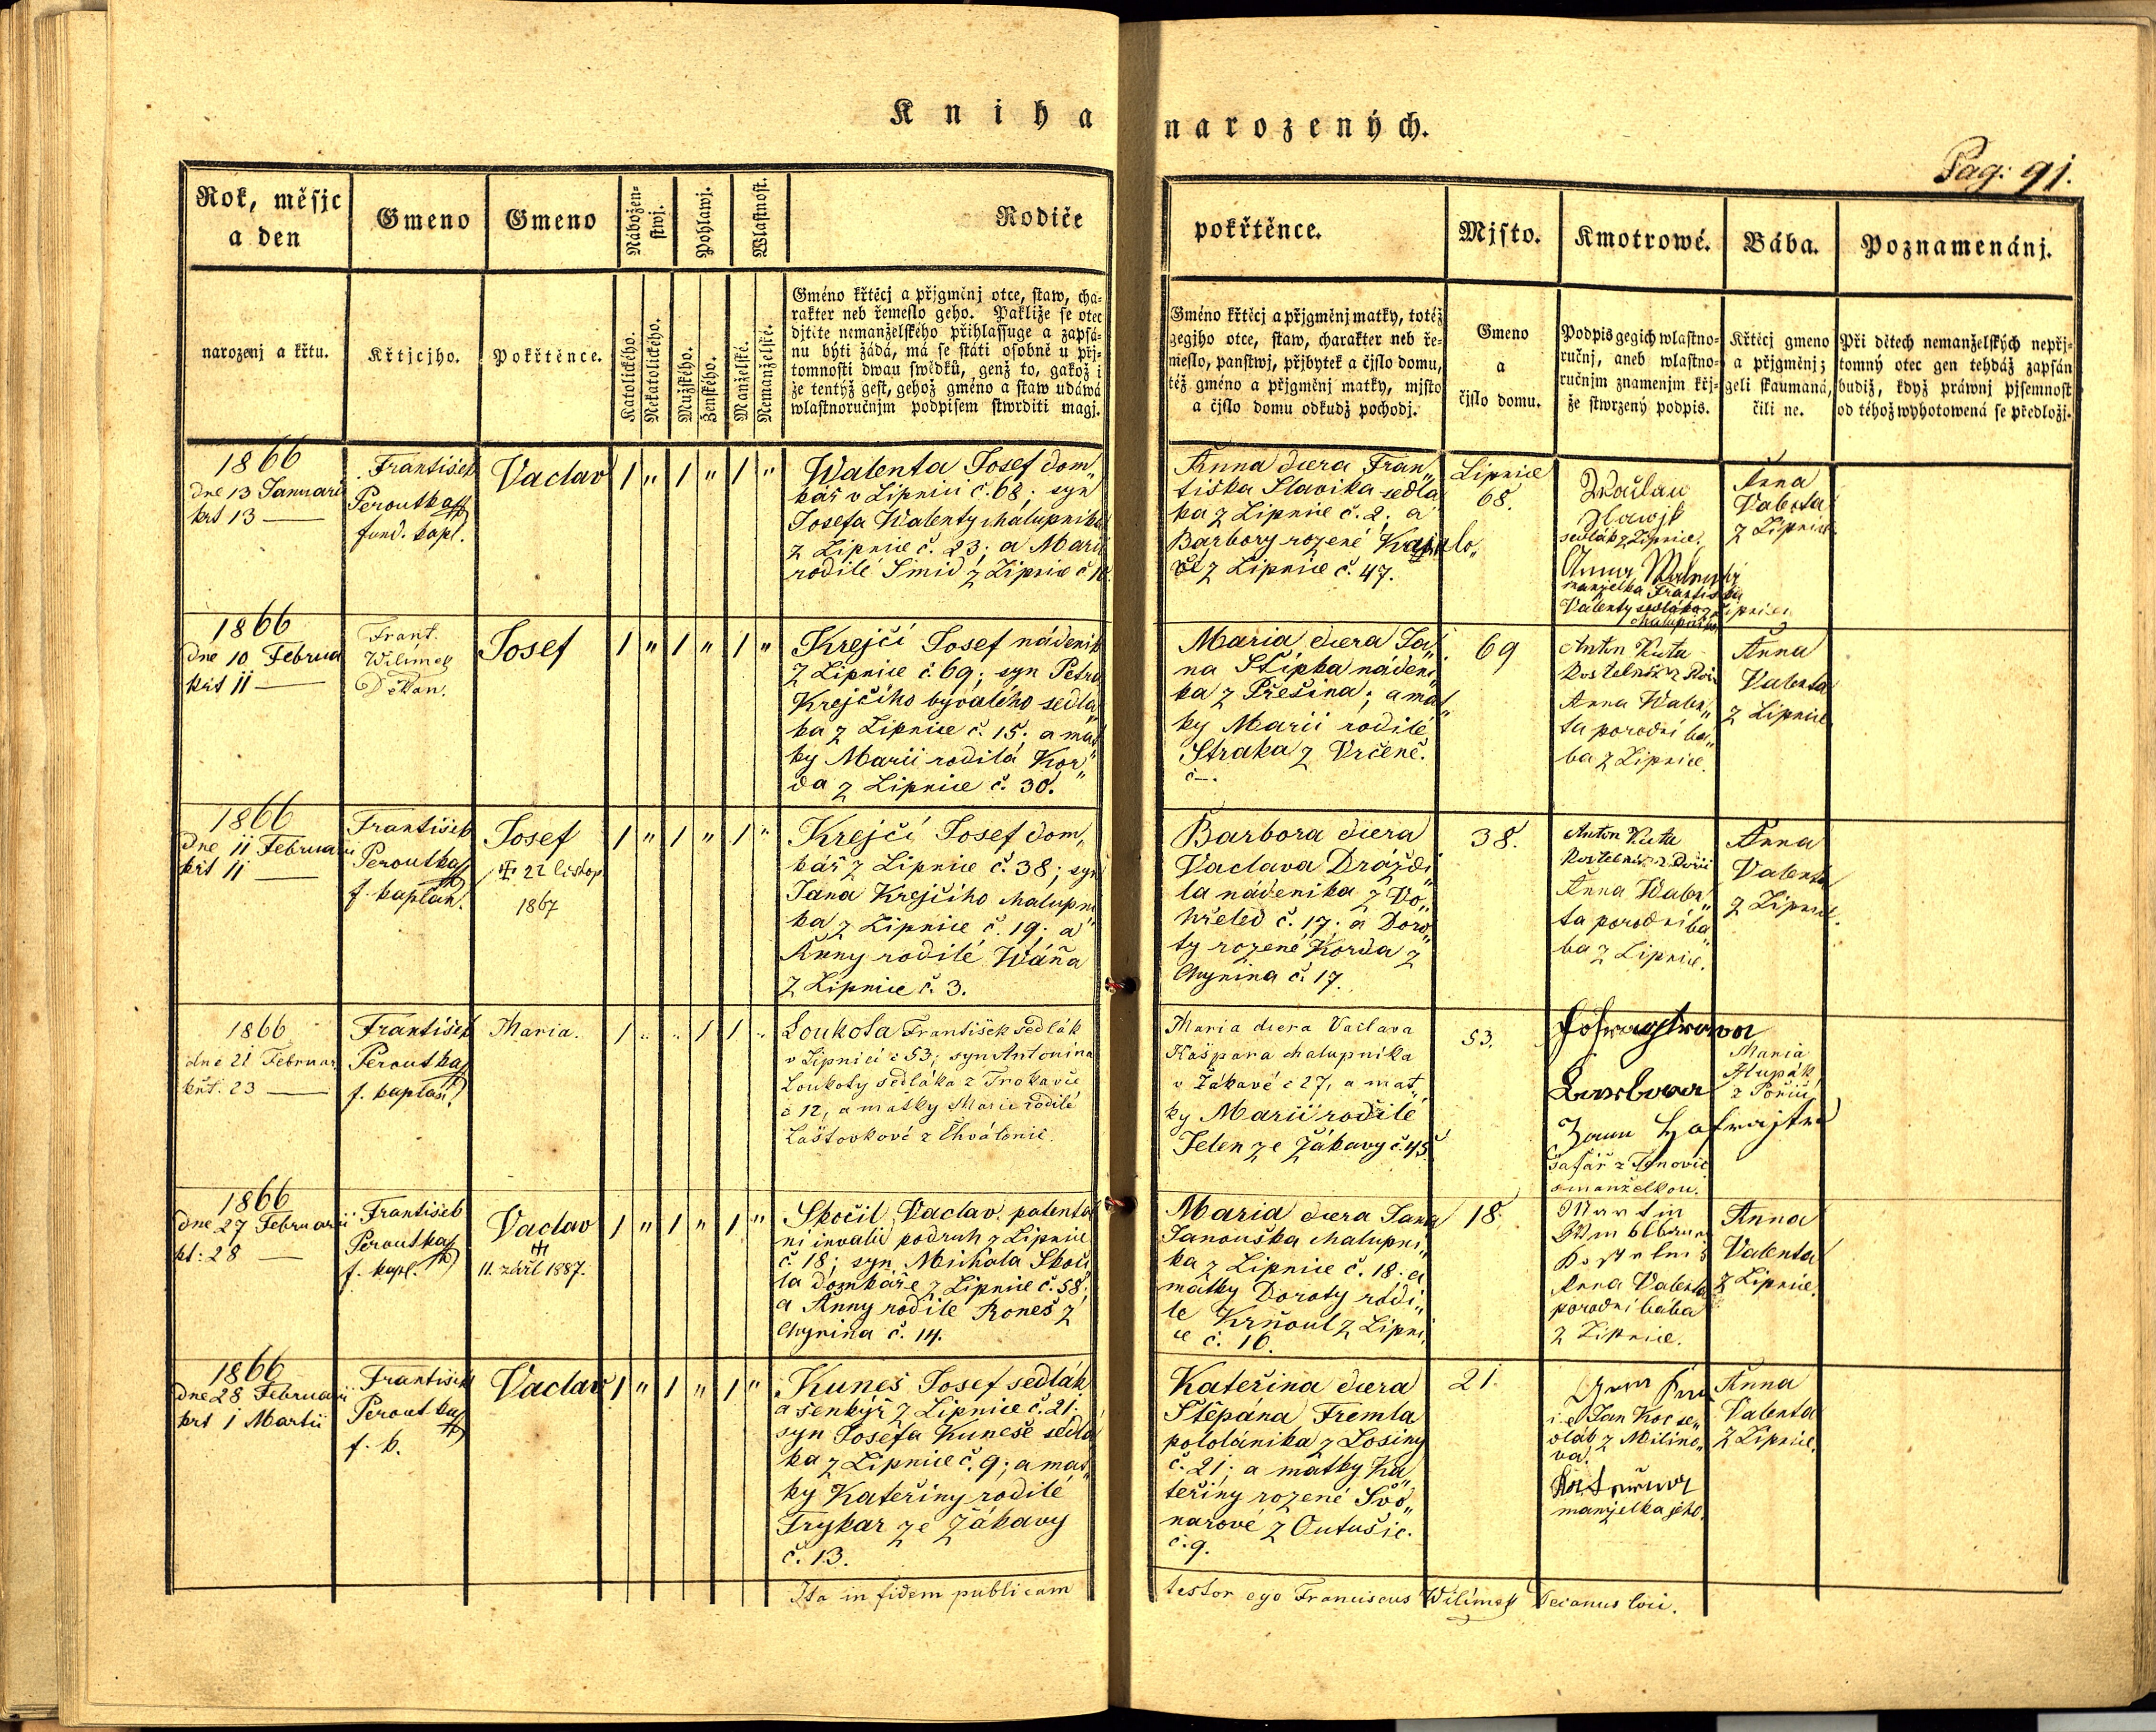 Kniha narozených.
Pag: 91.
Rok, měsjc
a den
Gmeno
Gmeno
Nábožen-
stwj.
Pohlawj.
Wlastnost.
Rodiče
pokřtěnce.
Mjsto.
Kmotrowé.
Bába.
Poznamenánj.
narozenj a křtu.
Křtjcjho.
Pokřtěnce.
Katolického.
Nekatolického.
Mužského.
Ženského.
Manželské.
Nemanželské.
Gméno křtěcj a přjgměnj otce, staw, cha-
rakter neb řemeslo geho. Pakliže se otec
djtěte nemanželského přihlassuge a zapsá-
nu býti žádá, má se státi osobně u přj-
tomnosti dwau swědků, genž to, gakož i
že tentýž gest, gehož gméno a staw udáwá
wlastnoručnjm podpisem stwrditi magj.
Gméno křtěcj a přjgměnj matky, totéž
gegjho otce, staw, charakter neb ře-
meslo, panstwj, přjbytek a čjslo domu,
též gméno a přjgměnj matky, mjsto
a čjslo domu odkudž pocházj.
Gmeno
a
čjslo domu.
Podpis gegich wlastno-
ručnj, aneb wlastno-
ručnjm znamenjm křj-
že stwrzený podpis.
Křtěcj gmeno
a přjgměnj;
geli skaumaná,
čili ne.
Při dětech nemanželských nepřj-
tomný otec gen tehdáž zapsán
budiž, když práwnj pjsemnost
od téhož wyhotowená se předložj.
1866
dne 13 Januari
křt 13 —
František
Peroutka
fund. kapl.
Vaclav
1 " 1 " 1 "
Walenta Josef dom"
kář v Lipnici č. 68; syn
Josefa Walenty chalupníka
z Lipnice č. 23; a Marii
rodilé Šmid z Lipnice č
Anna dcera Fran"
tiška Slavika sedlá
ka z Lipnice č. 2; a
Barbory rozené
z Lipnice č. 47.
Lipnice
68.
sedlák z Lipnice.
Anna
manželka Františka
Valenty sedláka z Lipnice
chalupníka
Anna
Valenta
z Lipnice
1866
dne 10 Februa
křt 11 —
Frant.
Wilímek
Děkan.
Josef
1 " 1 " 1 "
Krejčí Josef nádeník
z Lipnice č. 69; syn Petra
Krejčího bývalého sedlá"
ka z Lipnice č. 15. a mat
ky Marii rodilá Kor"
da z Lipnice č. 30.
Maria dcera Ja"
na Štípka nádeni
ka z Přešína; a mat"
ky Marii rodilé
Straka z Vrčeně.
č—.
69
Anton Kuta
Anna Walen"
ta porodní bá"
ba z Lipnice.
Anna
Valenta
z Lipnice
1866
dne 11 Februarii
křt 11 —
František
Peroutka
f. kaplan.
Josef
† 22 listop
1867
1 " 1 " 1 "
Krejčí Josef dom"
kář z Lipnice č. 38; syn
Jana Krejčího chalupní
ka z Lipnice č. 19; a
Anny rodilé Wáňa
z Lipnice č. 3.
Barbora dcera
Vaclava Dráždi
la nádeníka z Vo"
hřeled č. 17; a Doro"
ty rozené Korda z
Chynína č. 17.
38.
Anton Kuta
Anna Walen"
ta porodní bá"
ba z Lipnice.
Anna
Valenta
z Lipnice.
1866
dne 21 Februar
křt. 23 —
František
Peroutka
f. kaplan
Maria.
1 " " 1 1 "
Loukota František sedlák
v Lipnici č 53; syn Antonína
Loukoty sedláka z Trokavce
č 12, a matky Marie rodilé
Laštovkové z Chválenic.
Maria dcera Vaclava
Kašpara chalupníka
v Žákavě č 27, a mat"
ky Marii rodilé
Jelen ze Žákavy č. 45
53.
Barbora
šafář z
s manželkou.
Maria
z Poříčí
1866
dne 27 Februarii
kt: 28 —
František
Peroutka
f. kapl.
Vaclav
†
11. září 1887.
1 " 1 " 1 "
Skočil Vaclav patentál
ni invalid podruh z Lipnice
č. 18; syn Michala Skoči
la domkáře z Lipnice č. 58;
a Anny rodilé Roneš z
Chynína č. 14.
Maria dcera Jana
Janouška chalupni"
ka z Lipnice č. 18. a
matky Doroty rodi"
le Krňoul z Lipni
ce č. 16.
18.
Martin
Anna Valenta
porodní bába
z Lipnice.
Anna
Valenta
z Lipnice.
1866
dne 28 Februarii
křt 1 Martii
František
Peroutka
f. k.
Vaclav
1 " 1 " 1 "
Kuneš Josef sedlák
a šenkýř z Lipnice č. 21.
syn Josefa Kuneše sedlá
ka z Lipnice č. 9; a mat"
ky Kateřiny rodilé
Trykar ze Žákavy
č. 13.
Kateřina dcera
Štěpána Tremla
pololánika z Losiny
č. 21; a matky Ka"
teřiny rozené Svo"
narové z Outušic.
č. 9.
21.
i e Jan Koc se"
dlák z Milino"
va.
manželka jeho.
Anna
Valenta
z Lipnice.
Ita in fidem publicam testor ego Franciscus Wilímek Decanus loci.